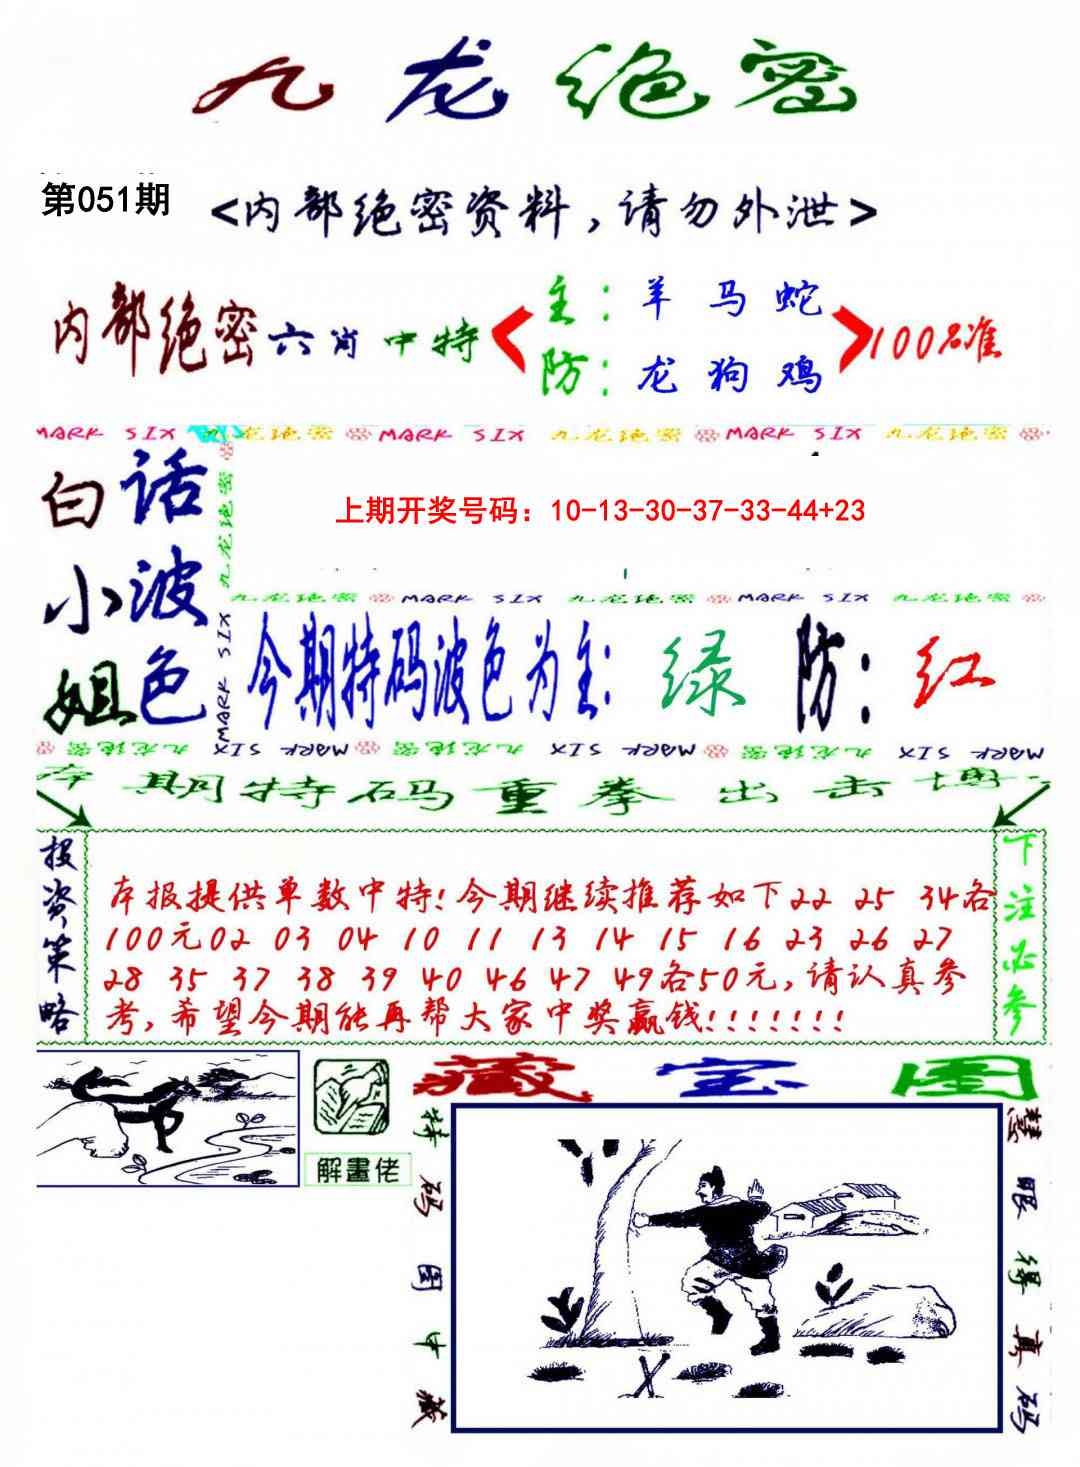 九龙绝密
第051期
<内部绝密资料,请勿外泄>
内部绝密六肖中特
主:羊马蛇
防:龙狗鸡
100%准
MARK SIX 九龙绝密 MARK SIX 九龙绝密 MARK SIX 九龙绝密
白小姐
话波色
九龙绝密
MARK SIX
上期开奖号码：10-13-30-37-33-44+23
九龙绝密 MARK SIX 九龙绝密 MARK SIX 九龙绝密
今期特码波色为主:绿 防:红
九龙绝密 MARK SIX 九龙绝密 MARK SIX 九龙绝密 MARK SIX
本期特码重拳出击博
投资策略
本报提供单数中特!今期继续推荐如下22 25 34各
100元02 03 04 10 11 13 14 15 16 23 26 27
28 35 37 38 39 40 46 47 49各50元,请认真参
考,希望今期能再帮大家中奖赢钱!!!!!!!
下注必参
解畫佬
藏宝图
特码图中藏
慧眼得真码